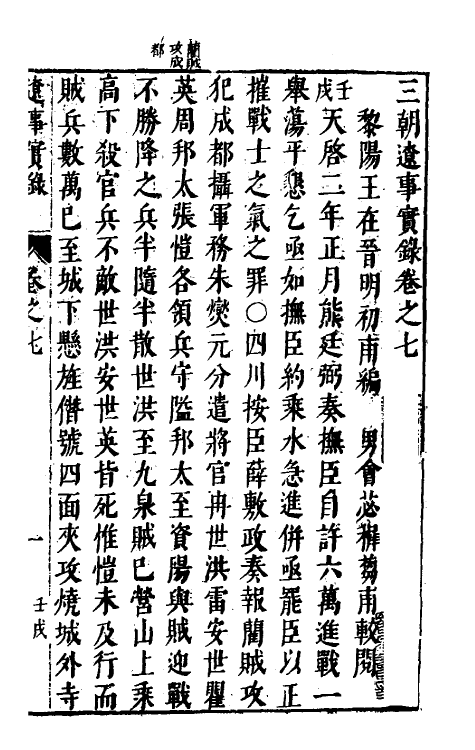 藺賊
攻成
都
三朝遼事實錄卷之七
黎陽王在晉明初甫編 男會苾穉芻甫較閱
壬戌天啓二年正月熊廷弼奏撫臣自許六萬進戰一
舉蕩平懇乞亟如撫臣約乘水急進併亟罷臣以正
摧戰士之氣之罪○四川按臣薛敷政奏報藺賊攻
犯成都攝軍務朱燮元分遣將官冉世洪雷安世瞿
英周邦太張愷各領兵守隘邦太至資陽與賊迎戰
不勝降之兵半隨半散世洪至九泉賊已營山上乘
高下殺官兵不敵世洪安世英皆死惟愷未及行而
賊兵數萬已至城下懸旌僭號四面夾攻燒城外寺
遼事實錄 卷之七 一 壬戌